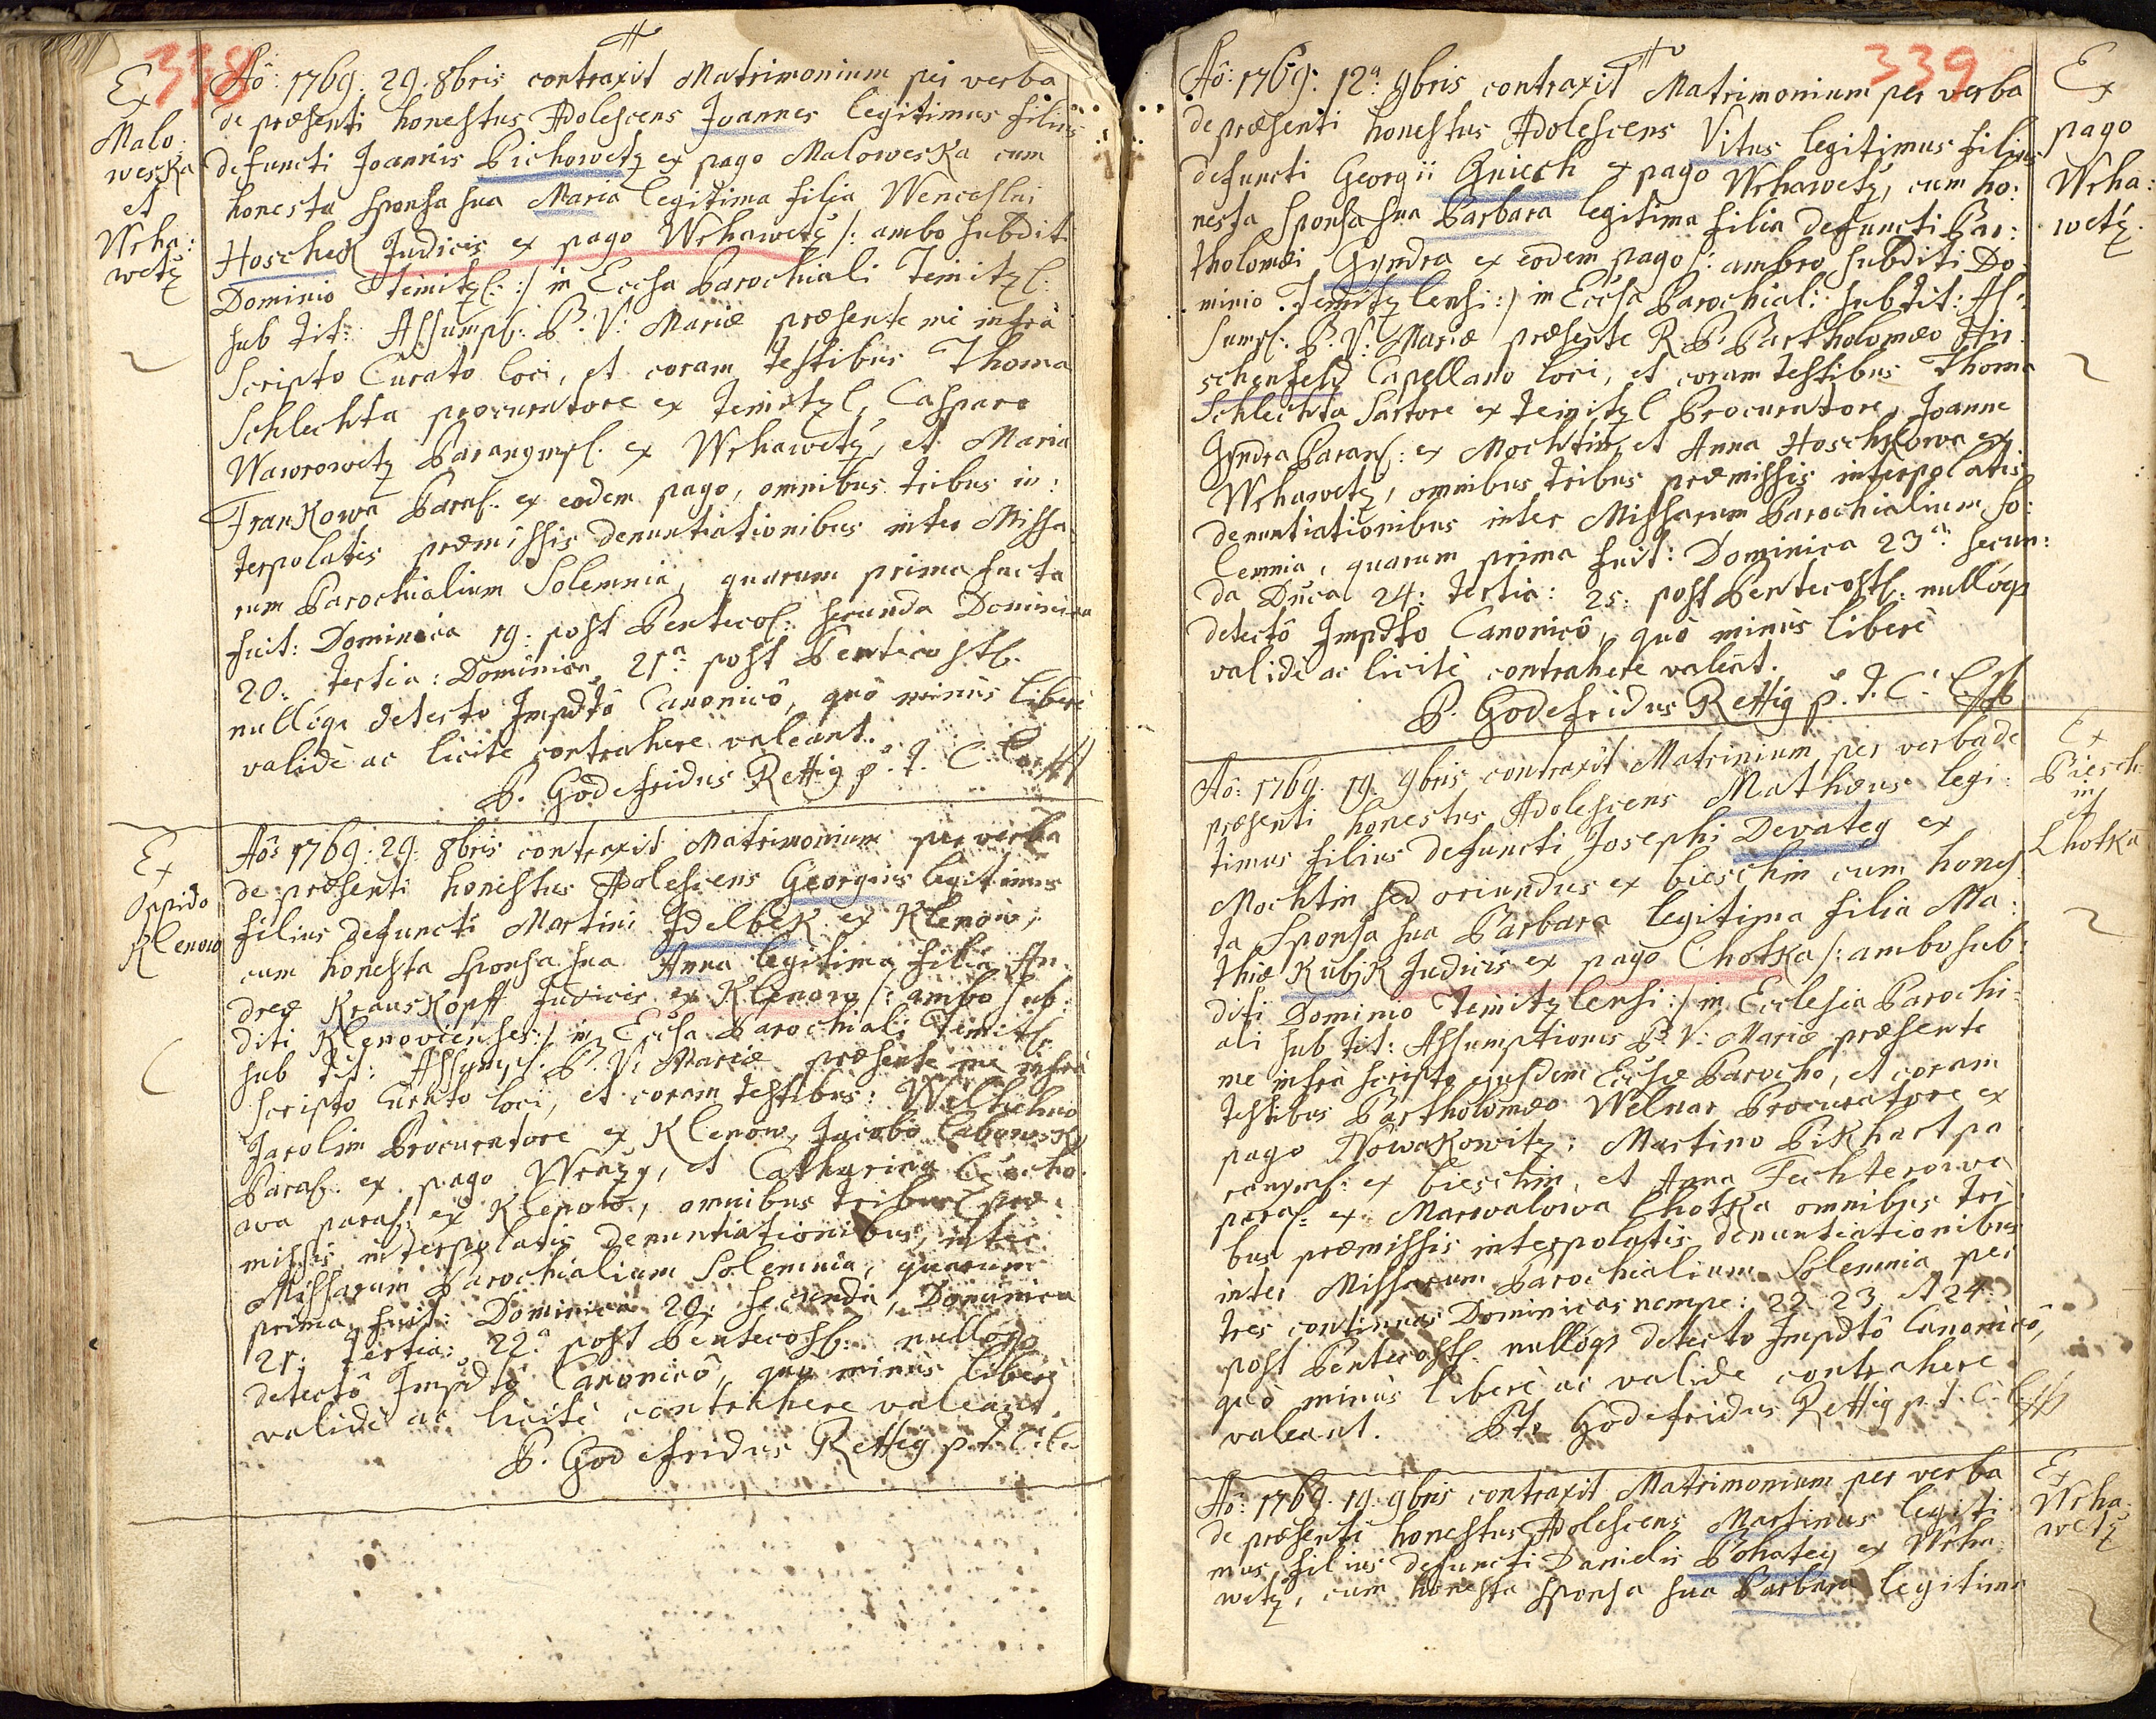 338
Ex
Malo:
weska
et
Wrha:
wetz
Aô: 1769. 29. 8bris contraxit Matrimonium per verba
de præsenti honestus Adolescens Joannes legitimus filius
defuncti Joannis Pichowetz ex pago Maloweska cum
honesta sponsa sua Maria legitima filia Wenceslai
Hoschek Judicis ex pago Wrhawetz /: ambo subditi
Dominio Teinitzl. :/ in Eccsa Parochiali Teinitzl.
sub tit: Assumpt. B. V. Mariæ præsente me infrà
Scripto Curato loci, et coram testibus Thoma
Schlechta procuratore ex Teinitzl, Casparo
Wawrowetz Paranymf. ex Wrhawetz, et Maria
Frankowa Paraf. ex eodem pago, omnibus tribus in:
terpolatis præmissis denuntiationibus inter Missa:
rum Parochialium Solemnia, quarum prima facta
fuit: Dominica 19. post Pentecos: secunda Dominica
20. tertia: Dominica 21a post Pentecost.
nullóq detecto Impdtô Canonicô, quò minùs liberè
validè ac licitè contrahere valeant.
P. Godefridus Rettig p. t. C.
Ex
Oppido
Klenow
Aô: 1769. 29. 8bris contraxit Matrimonium per verba
de præsenti honestus Adolescens Georgius legitimus
filius defuncti Martini Jdelbek ex Klenow,
cum honesta sponsa sua Anna legitima filia An:
dreæ Krauskopff Judicis ex Klenow /: ambo sub:
diti Klenovienses :/ in Eccsa Parochiali Teinitzl.
sub tit: Assumpt. B. V. Mariæ præsente me infrà
scripto Curato loci, et coram testibus: Welhelmo
Jarolim Procuratore ex Klenow, Jacobo
Paraf. ex pago et Catharina
wa paraf. ex Klenow, omnibus tribus præ:
missis interpolatis denuntiationibus, inter
Missarum Parochialium Solemnia, quarum
prima fuit: Dominica 20. secunda, Dominica
21. tertia: 22a post Pentecost. nullóq
detectô Impdtô Canonicô, quo minùs liberè
validè ac licitè contrahere valeant.
P. Godefridus Rettig p. t. C.
339
Aô: 1769. 12a 9bris contraxit Matrimonium per verba
de præsenti honestus Adolescens Vitus legitimus filius
defuncti Georgii Gniech ex pago Wrhawetz, cum ho:
nesta sponsa sua Barbara legitima filia defuncti Bar:
tholomæi Gyndra ex eodem pago /: ambo subditi Do:
minio Teinitzlensi :/ in Eccsa Parochiali sub tit: As:
sumpt. B. V. Mariæ præsente R. P. Bartholomæo Hir:
schenfeld Capellano loci, et coram testibus Thoma
Schlechta Sartore ex Teinitzl Procuratore, Joanne
Gyndra Paran. ex Mochtin, et Anna Hoschkowa ex
Wrhawetz, omnibus tribus præmissis interpolatis
denuntiationibus inter Missarum Parochialium So:
lemnia, quarum prima fuit: Dominica 23a secun:
da Dnca 24. tertia: 25. post Pentecost. nullóq
detectô Impdto Canonicô, quò minùs liberè
validè ac licitè contrahere valeant.
P. Godefridus Rettig p. t. C.
Ex
pago
Wrha:
wetz.
Aô: 1769. 19. 9bris contraxit Matrinium per verba de
præsenti honestus Adolescens Mathæus legi:
timus filius defuncti Josephi Devatey ex
Mochtin sed oriundus ex bieschin cum hones
ta sponsa sua Barbara legitima filia Ma:
thiæ Kubjk Judicis ex pago Chotka /: ambo sub:
diti Dominio Teinitzlensi :/ in Ecclesia Parochi:
ali sub tit: Assumptionis B. V. Mariæ præsente
me infrà scripto ejusdem Eccsæ Parocho, et coram
testibus Bartholomæo Welnar Procuratore ex
pago Nowakowitz; Martino Pikhart pa
ranymf. ex bieschin, et Anna Fechterowa
paraf. ex Marwalowa Chotka omnibus tri
bus præmissis interpolatis denuntiationibus
inter Missarum Parochialium Solemnia per
tres continuas Dominicas nempe: 22. 23. et 24.
post Pentecost. nullóq detecto Impdtô Canonicô,
quò minùs liberè ac validè contrahere
valeant. Godefridus Rettig p. t. C.
Ex
Biesch:
in
et
Chotka
Aô: 1769. 19. 9bris contraxit Matrimonium per verba
de præsenti honestus Adolescens Martinus legiti
mus filius defuncti Danielis Bohatey ex Wrha:
wetz, cum honesta sponsa sua Barbara legitima
Ex
Wrha:
wetz